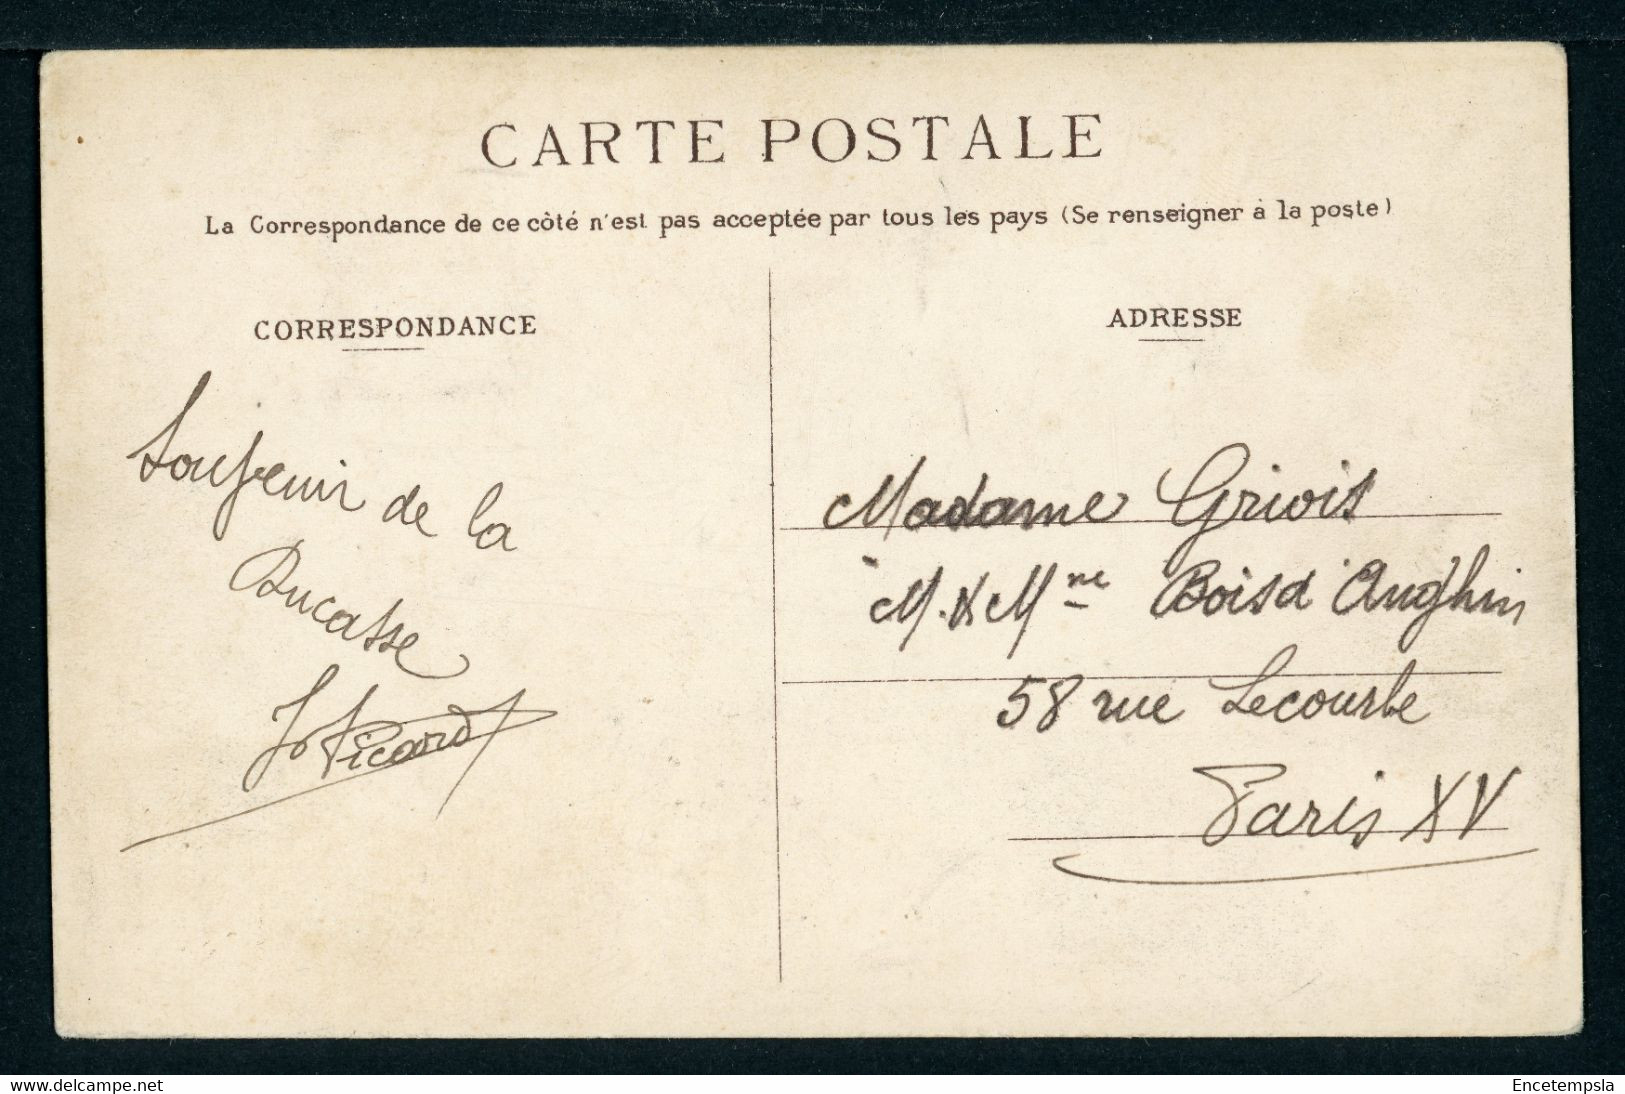 CARTE POSTALE
La Correspondance de ce côté n'est pas acceptée par tous les pays (Se renseigner à la poste)
CORRESPONDANCE
Souvenir de la
Ducasse
Picard
ADRESSE
Madame Grivois
M. & Mme Boisd'Anghin
58 rue Lecourbe
Paris XV
www.delcampe.net
Encetempsla